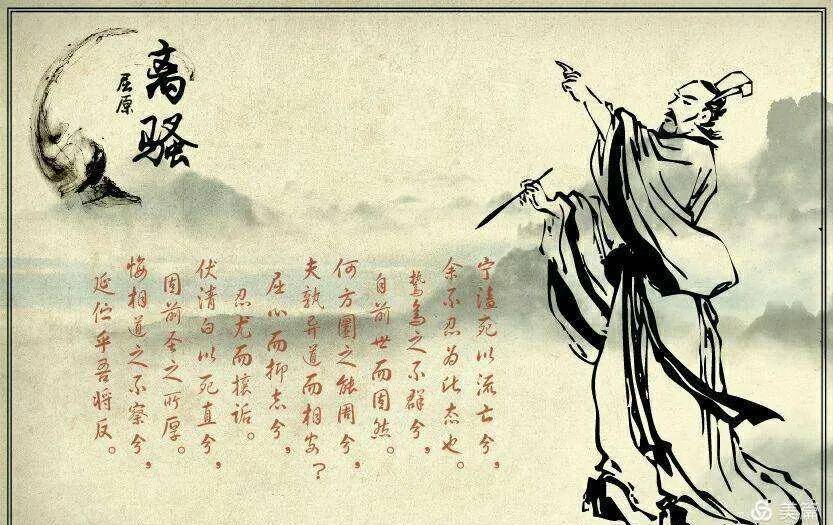 离骚
屈原
宁溘死以流亡兮，
余不忍为此态也。
鸷鸟之不群兮，
自前世而固然。
何方圜之能周兮，
夫孰异道而相安？
屈心而抑志兮，
忍尤而攘诟。
伏清白以死直兮，
固前圣之所厚。
悔相道之不察兮，
延伫乎吾将反。
美篇